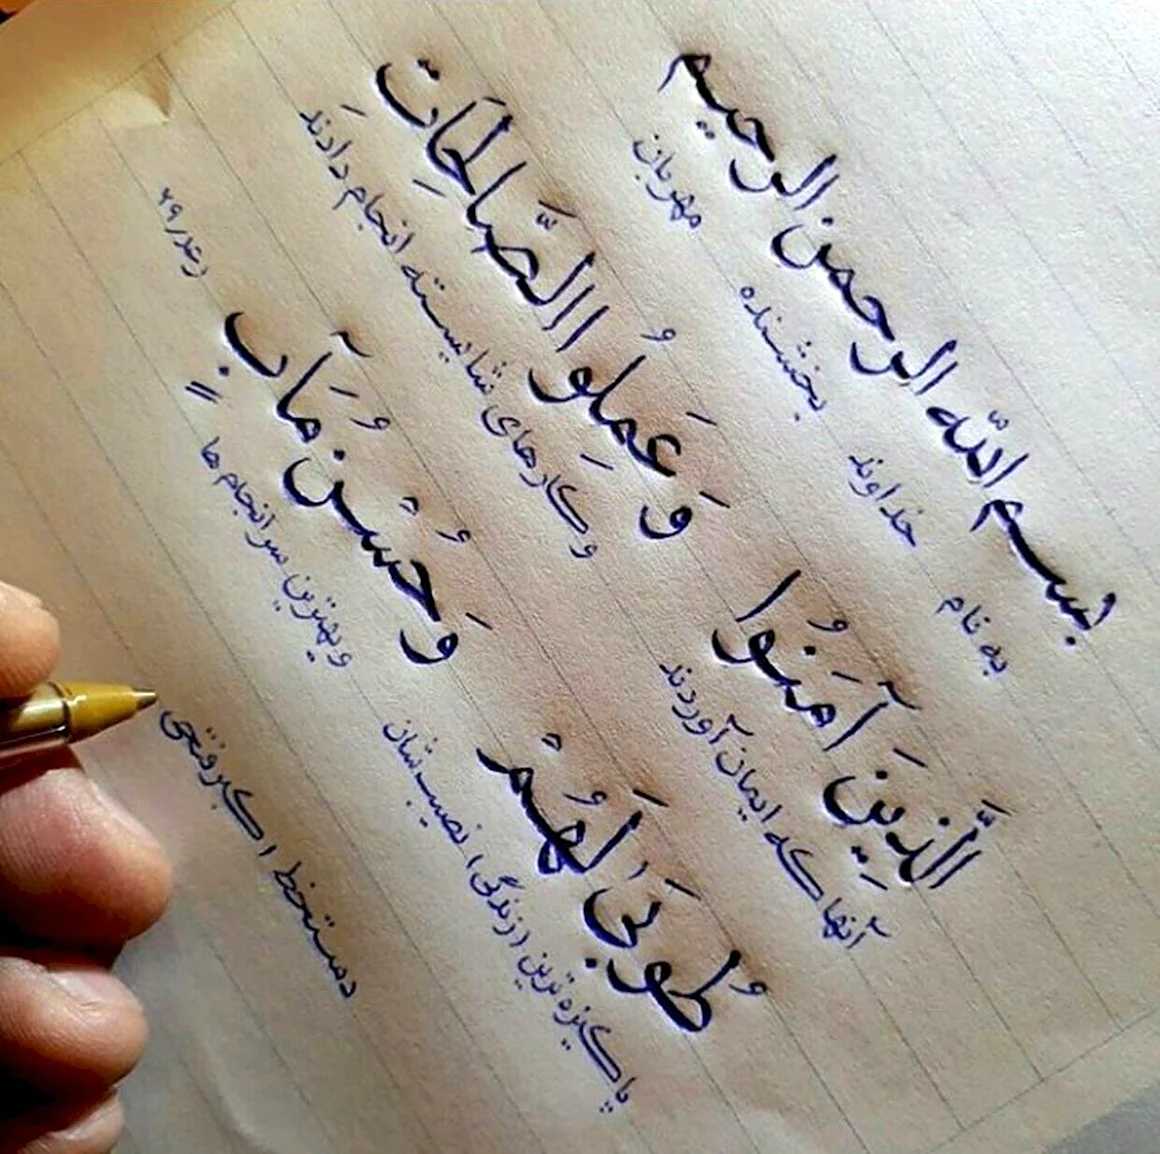 بسم اللّه الرحمن الرحیم
به نام خداوند بخشنده مهربان
اَلَّذِینَ آمَنُوا وَ عَمِلُوا الصَّالِحَاتِ
آنها که ایمان آوردند و کارهای شایسته انجام دادند
طُوبَىٰ لَهُمْ وَ حُسْنُ مَآبٍ
پاکیزه ترین (زندگی) نصیب شان و بهترین سرانجام ها
رعد/۲۹
دستخط اکبر فتحی